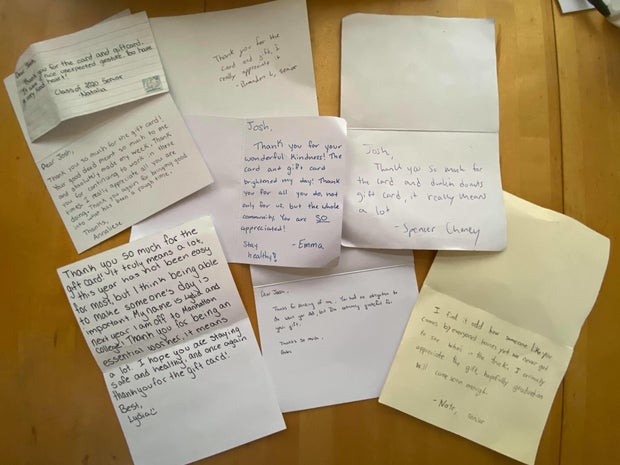 Dear Josh,
Thank you for the card and giftcard.
It was a nice unexpected gesture. You have
a very kind heart!
Class of 2020 Senior
Natalia
Dear Josh,
Thank you so much for the gift card!
Your good deed meant so much to me
and absolutely made my week. Thank
you for continuing to work in these
times. I really appreciate all you are
doing. Thank you again for bringing good
into what has been a rough time.
Thanks,
Annaliese
Thank you for the
card and gift, I
really appreciate it
- Brandon L, senior
Josh,
Thank you for your
wonderful kindness! The
card and gift card
brightened my day! Thank
you for all you do, not
only for us, but the whole
community. You are SO
appreciated!
Stay
healthy!
- Emma
Josh,
Thank you so much for
the card and dunkin donuts
gift card, it really means
a lot
- Spencer
Thank you so much for the
gift card! It truly means a lot.
this year has not been easy
for most, but I think being able
to make someone's day is
important. My name is Lydia and
next year I am off to Manhattan
college! Thank you for being an
essential worker, it means
a lot. I hope you are staying
safe and healthy, and once again
thank you for the gift card!
Best,
Lydia :)
Dear Josh,
Thanks for thinking of me. You had no obligation to
do what you did, but I'm extremely grateful for
your gift.
Thanks so much,
I find it odd how someone like you
comes by everyones houses yet we never get
to see who in the truck. I
appreciate the gift hopefully graduation
will come soon enough.
- Nate, senior